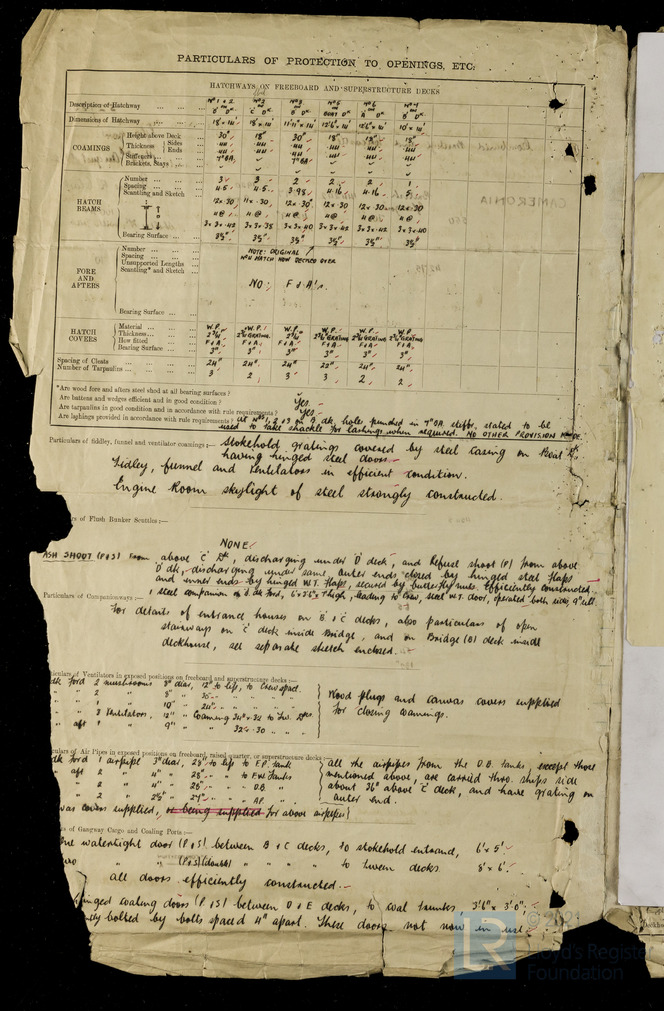 PARTICULARS OF PROTECTION TO OPENINGS, ETC.
HATCHWAYS ON FREEBOARD AND SUPERSTRUCTURE DECKS
Description of Hatchway
Dimensions of Hatchway
COAMINGS
Height above Deck 30" 18" 30" 18" 18" 30"
Thickness Sides .44 .44 .44 .44 .44 .44
Ends .44 .44 .44 .44 .44 .44
Stiffeners 7"BA. 7"BA
Brackets, Stays
HATCH BEAMS
Number 3 3 2 2 2 1
Spacing 4.5 4.5 3.98 4.16 4.16 5
Scantling and Sketch
12 x .30 11 x .30 12 x .30 12 x .30 12 x .30 12 x .30
4@ 4@ 4@ 4@ 4@ 4@
3x3x.42 3x3x.35 3x3x.40 3x3x.42 3x3x.42 3x3x.40
Bearing Surface 3½" 3½" 3½" 3½" 3½"
FORE AND AFTERS
Number
Spacing
Unsupported Lengths
Scantling* and Sketch
Bearing Surface
NOTE: ORIGINAL
No 4 HATCH NOW DECKED OVER
NO: F & A's.
HATCH COVERS
Material W.P. W.P. W.P. W.P. W.P. W.P.
Thickness
How fitted F&A. F&A. F&A. F&A. F&A. F&A.
Bearing Surface 3" 3" 3" 3" 3" 3"
Spacing of Cleats 24" 24" 24" 22" 24" 24"
Number of Tarpaulins 3 2 3 3 2 2
*Are wood fore and afters steel shod at all bearing surfaces?
Are battens and wedges efficient and in good condition? Yes.
Are tarpaulins in good condition and in accordance with rule requirements? Yes.
Are lashings provided in accordance with rule requirements? At Nos 1, 2 & 3 on B dk, holes punched in 7"BA stiffr, stated to be
used to take shackle for lashings when required. NO OTHER PROVISION MADE.
Particulars of fiddley, funnel and ventilator coamings:— Stokehold gratings covered by steel casing on Boat Dk,
having hinged steel doors.
Fidley, funnel and Ventilators in efficient condition.
Engine Room skylight of steel strongly constructed.
of Flush Bunker Scuttles:—
NONE
ASH SHOOT (P&S) From above 'C' Dk, discharging under 'D' deck, and Refuse shoot (P) from above
'D' dk, discharging under same, outer ends closed by hinged steel flaps
and inner ends by hinged W.T. flaps, secured by butterfly nuts. Efficiently constructed.
Particulars of Companionways:— 1 steel companion
For details of entrance houses on B & C decks, also particulars of open
stairways on 'C' deck inside Bridge, and on Bridge (B) deck inside
deckhouse, see separate sketch enclosed.
of Ventilators in exposed positions on freeboard and superstructure decks:—
dk Ford 2 mushrooms 8" diar, 12" to lip, to Crew space
" " 2 " 8" "
" " 1 " 10" " 24" "
" " 2 Ventilators, 12" " Coaming 34" x .32 to Tw. Dks
" aft 1 " 9" "
Wood plugs and canvas covers supplied
for closing coamings.
of Air Pipes in exposed positions on freeboard, raised quarter, or superstructure decks:—
dk ford 1 airpipe 3" diar, 28" to lip to F.P. tank
" aft 2 " 4" " 28" " " to F.W. Tanks
" " 2 " 4" " 28" " " D.B. "
" " 2 " 2½" " 27" " " A.P. "
covers supplied, or being supplied for above airpipes
all the airpipes from the D.B. tanks, except those
mentioned above, are carried thro. ships side
about 36" above 'C' deck, and have grating on
outer end.
of Gangway Cargo and Coaling Ports:—
One watertight door (P&S) between B & C decks, to stokehold entrance, 6' x 5'
" " (P&S) (double) " " " " to tween decks 8' x 6'
all doors efficiently constructed.
hinged coaling doors (P&S) between D & E decks, to coal bunkers 3'6" x 3'0",
bolted by bolts spaced 4" apart. These doors not now in use.
© 2021
LR
Lloyd's Register
Foundation